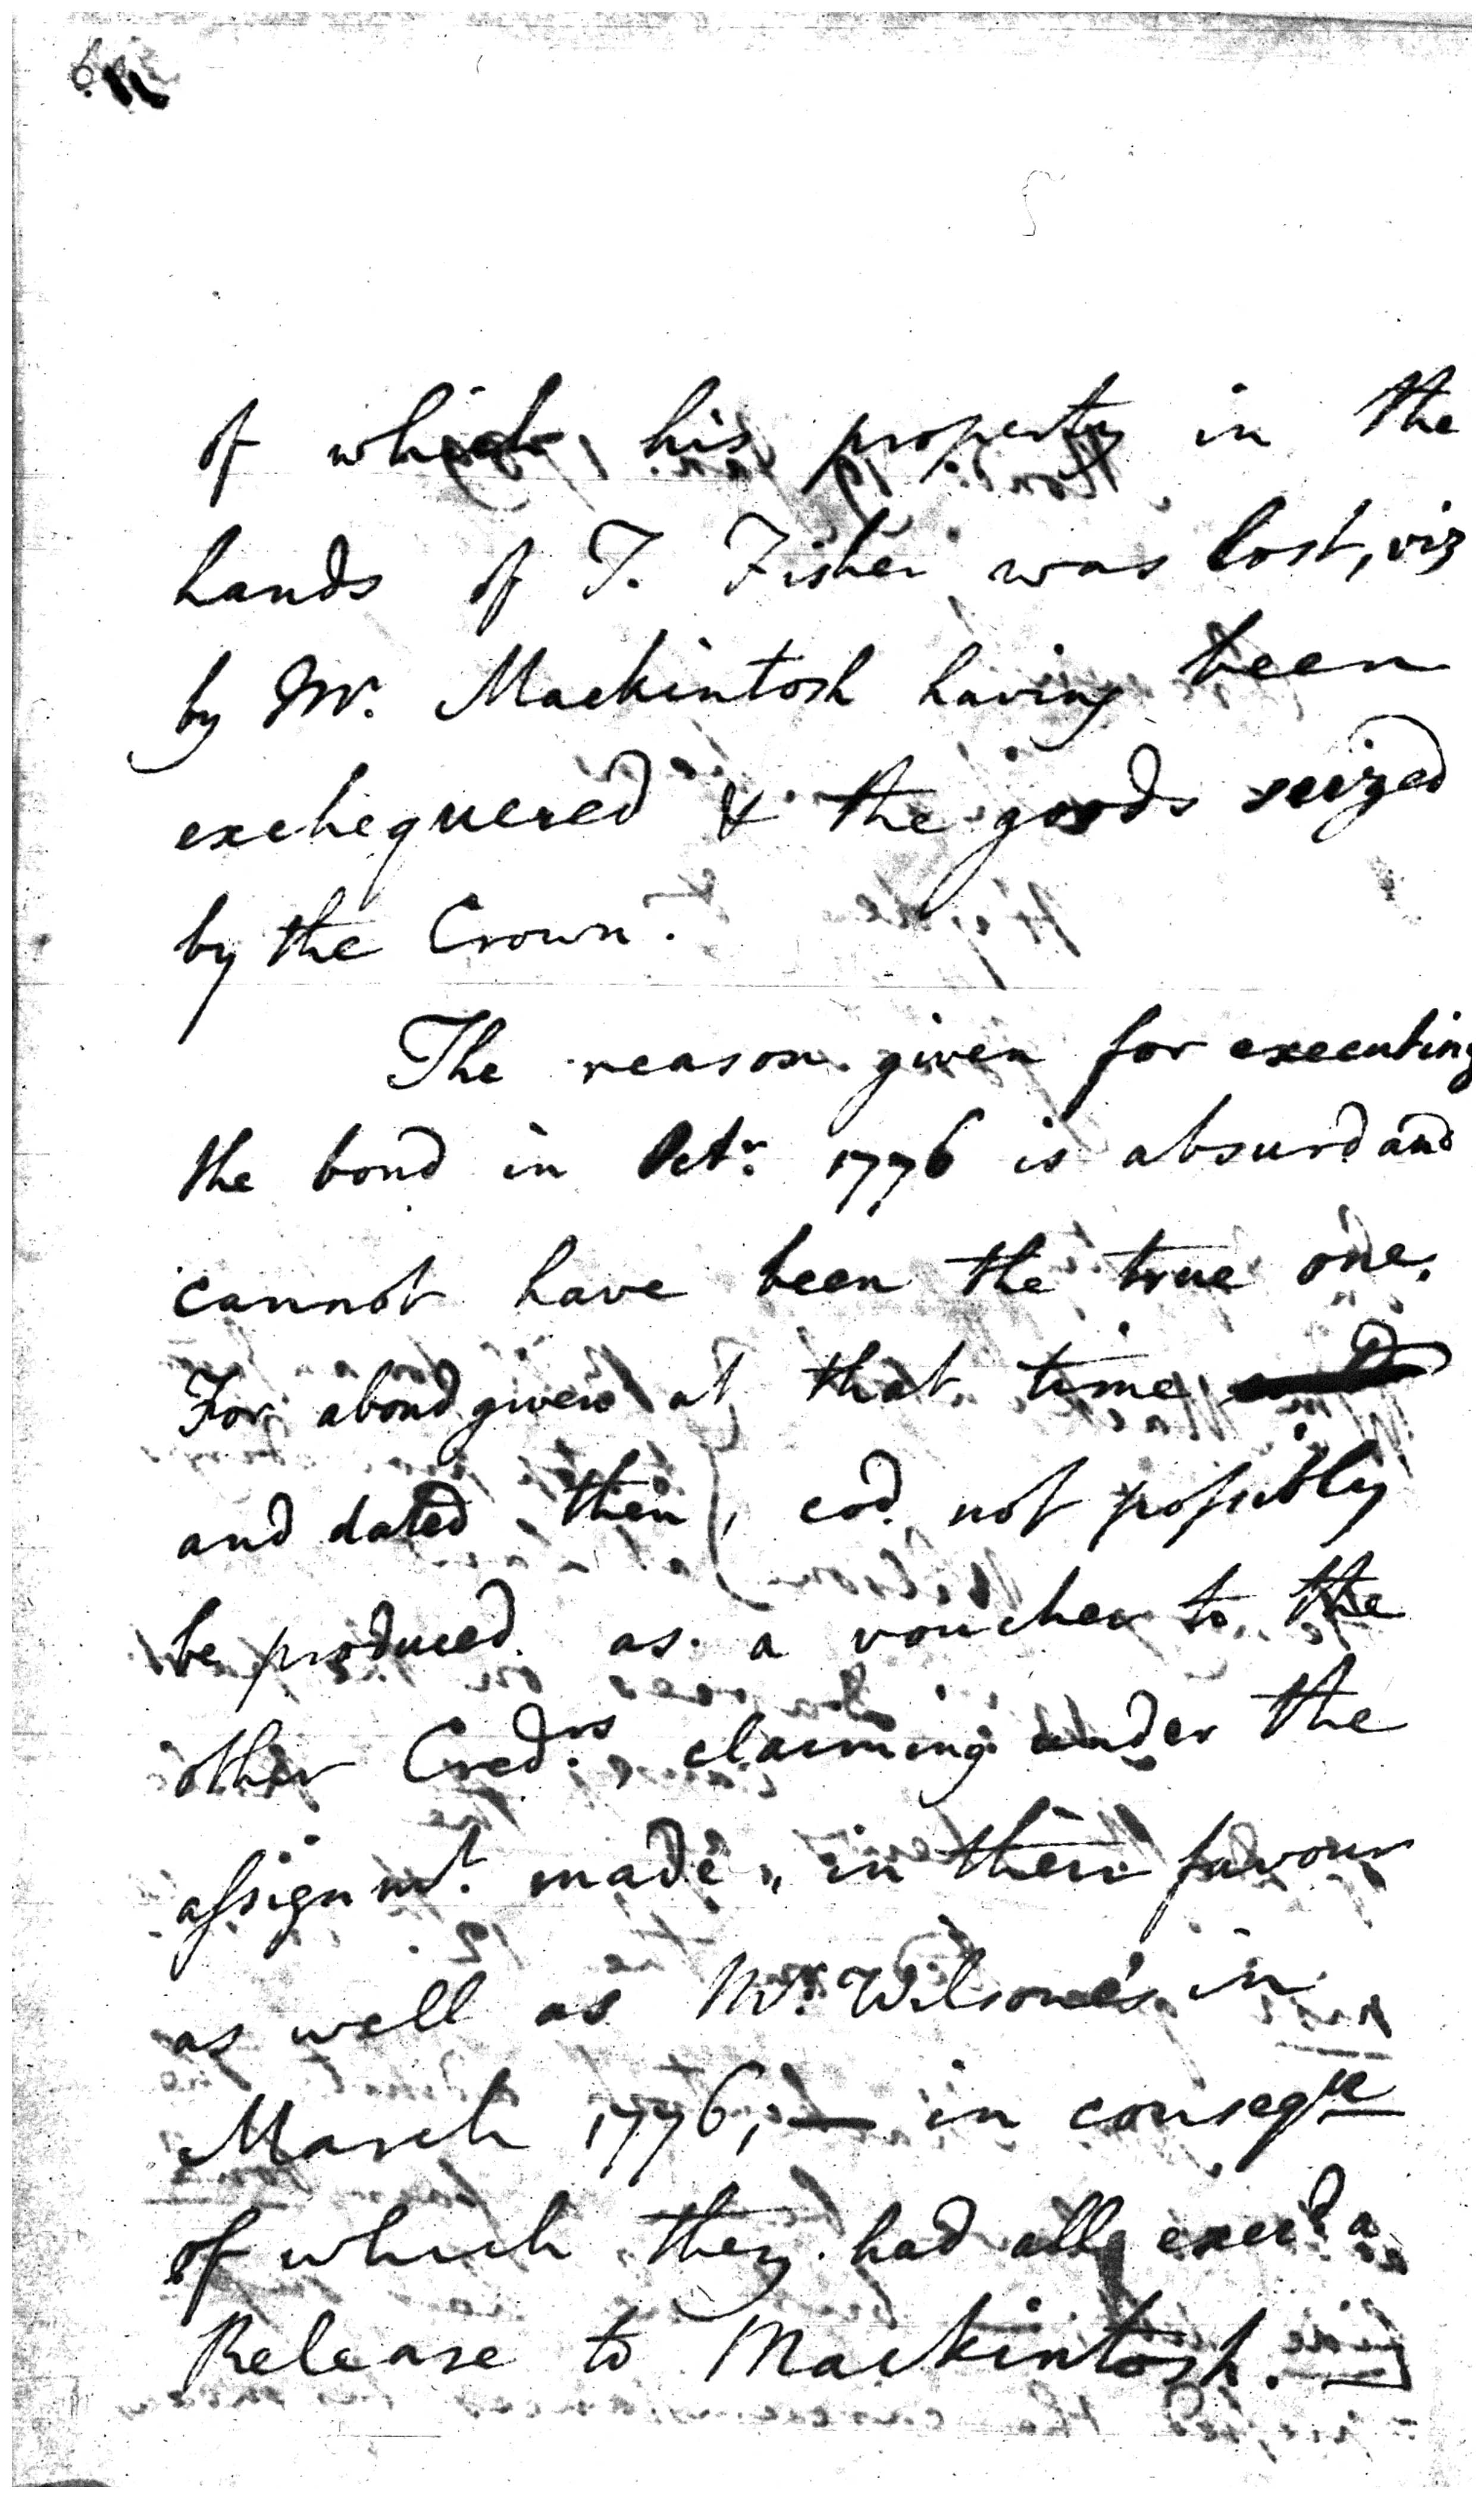 of which his property in the
hands of T. Fisher was lost, viz
by Mr. Mackintosh having been
exchequered & the goods seized
by the Crown.
The reason given for executing
the bond in Octr. 1776 is absurd and
cannot have been the true one.
For a bond given at that time
and dated then, cod. not possibly
be produced as a voucher to the
other Credrs. claiming under the
assignmt. made in their favour
as well as Mr. Wilsone's in
March 1776, in conseqce
of which they had all execd. a
Release to Mackintosh.